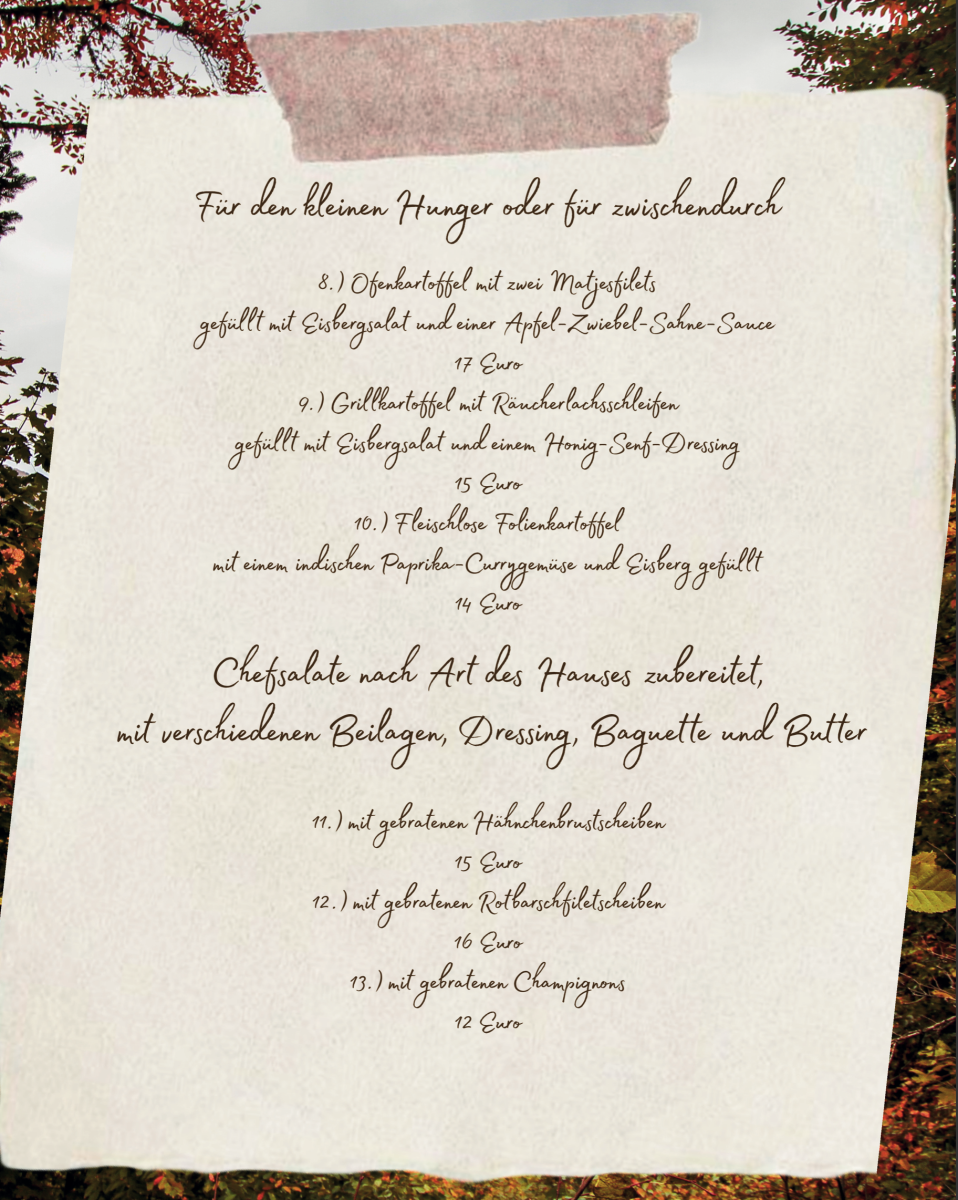 Für den kleinen Hunger oder für zwischendurch
8.) Ofenkartoffel mit zwei Matjesfilets
gefüllt mit Eisbergsalat und einer Apfel-Zwiebel-Sahne-Sauce
17 Euro
9.) Grillkartoffel mit Räucherlachsschleifen
gefüllt mit Eisbergsalat und einem Honig-Senf-Dressing
15 Euro
10.) Fleischlose Folienkartoffel
mit einem indischen Paprika-Currygemüse und Eisberg gefüllt
14 Euro
Chefsalate nach Art des Hauses zubereitet,
mit verschiedenen Beilagen, Dressing, Baguette und Butter
11.) mit gebratenen Hähnchenbrustscheiben
15 Euro
12.) mit gebratenen Rotbarschfiletscheiben
16 Euro
13.) mit gebratenen Champignons
12 Euro